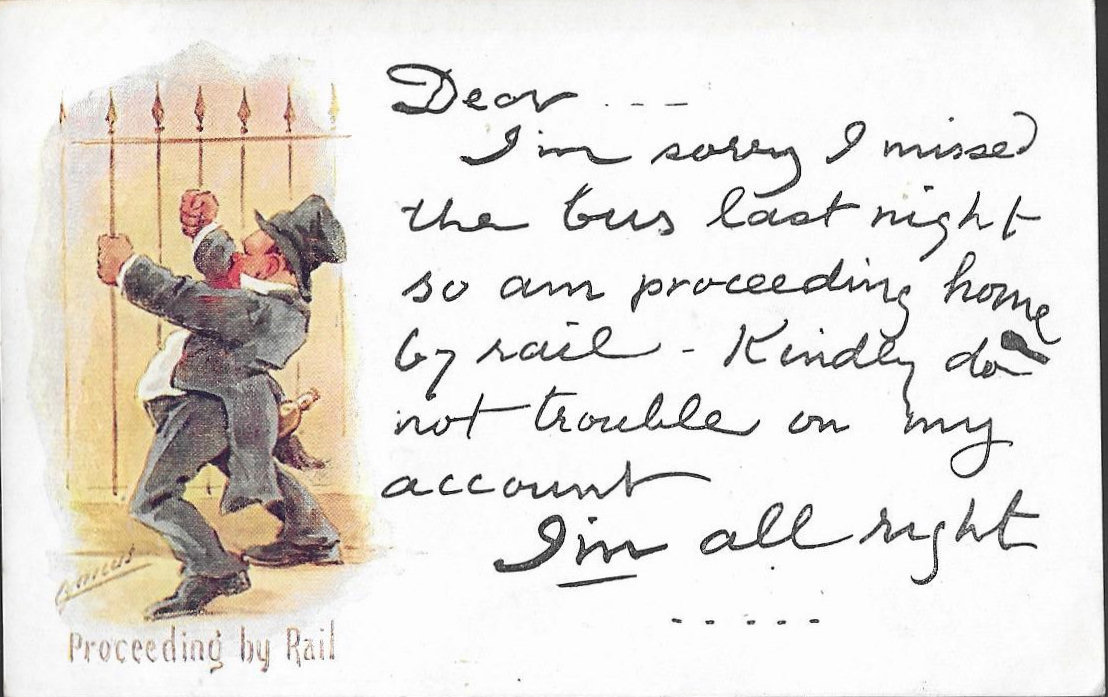 Dear ---
I'm sorry I missed
the bus last night
so am proceeding home
by rail - Kindly do
not trouble on my
account
I'm all right
.....
Proceeding by Rail